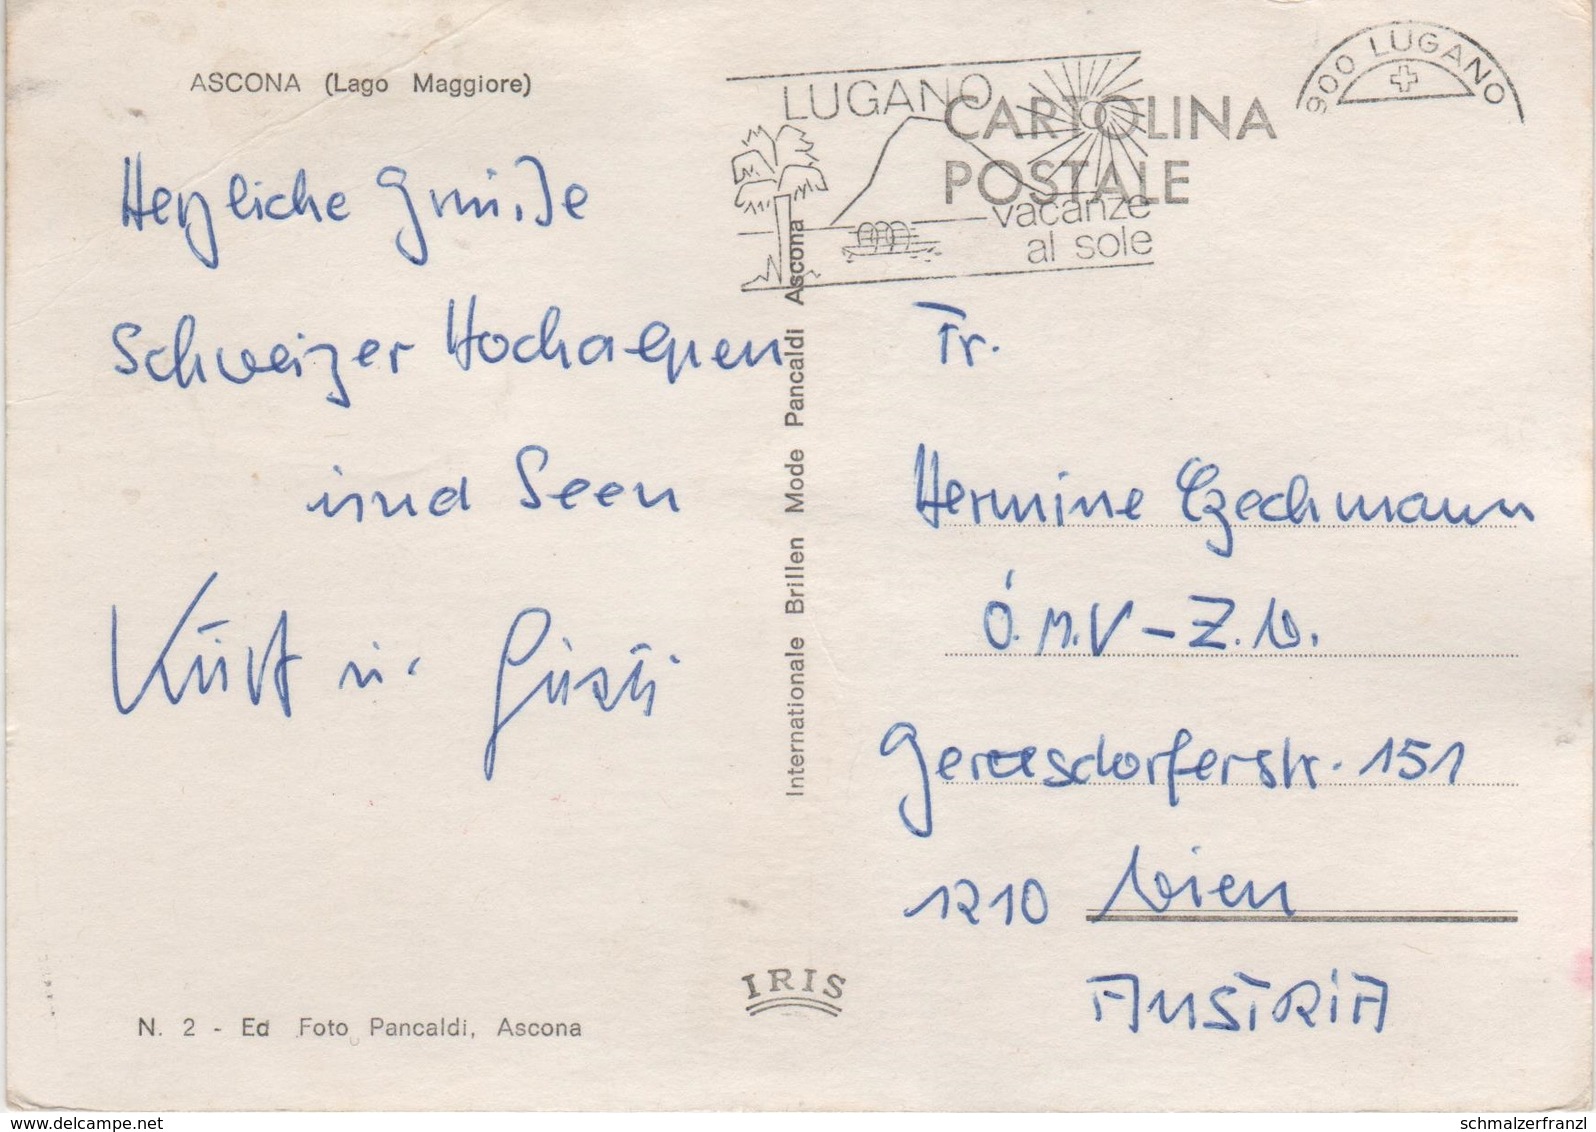 ASCONA (Lago Maggiore)
Herzliche Grüße
Schweizer Hochalpen
und Seen
Kurt u.
N. 2 - Ed Foto Pancaldi, Ascona
Internationale Brillen Mode Pancaldi Ascona
IRIS
LUGANO
vacanze
al sole
CARTOLINA
POSTALE
900 LUGANO
Fr.
Hermine Czechmann
Ö.M.V-Z.W.
Gerasdorferstr. 151
1210 Wien
AUSTRIA
delcampe.net
schmalzerfranzl